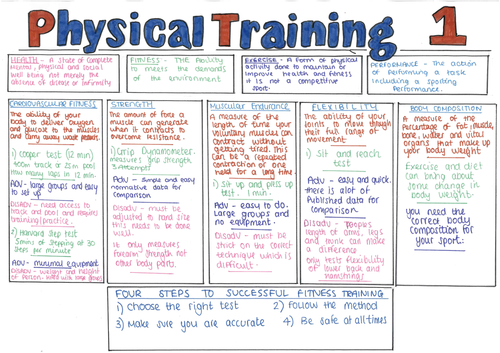 Physical Training 1
HEALTH - A state of complete
mental, physical and social
well being not merely the
absence of disease or infirmity
FITNESS - THE Ability
to meets the demands
of the environment
EXERCISE - A form of physical
activity done to maintain or
improve health and fitness
it is not a competitive
sport.
PERFORMANCE - The action
of performing a task
including a sporting
Performance.
CARDIOVASCULAR FITNESS
The ability of your
body to deliver oxygen
and glucose to the muscles
and carry away waste products
1) Cooper test (12 min)
400m track or 25m pool
how many laps in 12 min
ADV - large groups and easy
to set up
DISADV - need access to
track and pool and requires
training/practice.
2) Harvard Step test
5mins of stepping at 30
steps per minute
ADV - minimal equipment
DISADV - weight and height
of person.
STRENGTH
The amount of force a
muscle can generate
when it contracts to
overcome resistance.
1) Grip Dynamometer.
measures grip strength
3 Attempts
Adv - Simple and easy
normative data for
comparison
Disadv - must be
adjusted to hand size
this needs to be done
well.
It only measures
forearm strength not
other body parts.
Muscular Endurance
A measure of the
length of time your
voluntary muscles can
contract without
getting tired. This can
be a repeated
contraction or one
held for a long time
1) Sit up and press up
test. 1 min.
Adv - easy to do.
Large groups and
no equipment.
Disadv - must be
strict on the correct
technique which is
difficult.
FLEXIBILITY
The ability of your
joints, to move through
their full range of
movement
1) Sit and reach
test
Adv - easy and quick.
there is alot of
Published data for
comparison.
Disadv - Peoples
length of arms, legs
and trunk can make
a difference
only tests flexibility
of lower back and
hamstring!
BODY COMPOSITION
A measure of the
percentage of fat, muscle,
bone, water and vital
organs that make up
your body weight
Exercise and diet
can bring about
some change in
body weight.
you need the
correct body
composition for
your sport!
FOUR STEPS TO SUCCESSFUL FITNESS TRAINING
1) choose the right test 2) Follow the method
3) Make sure you are accurate 4) Be safe at all times